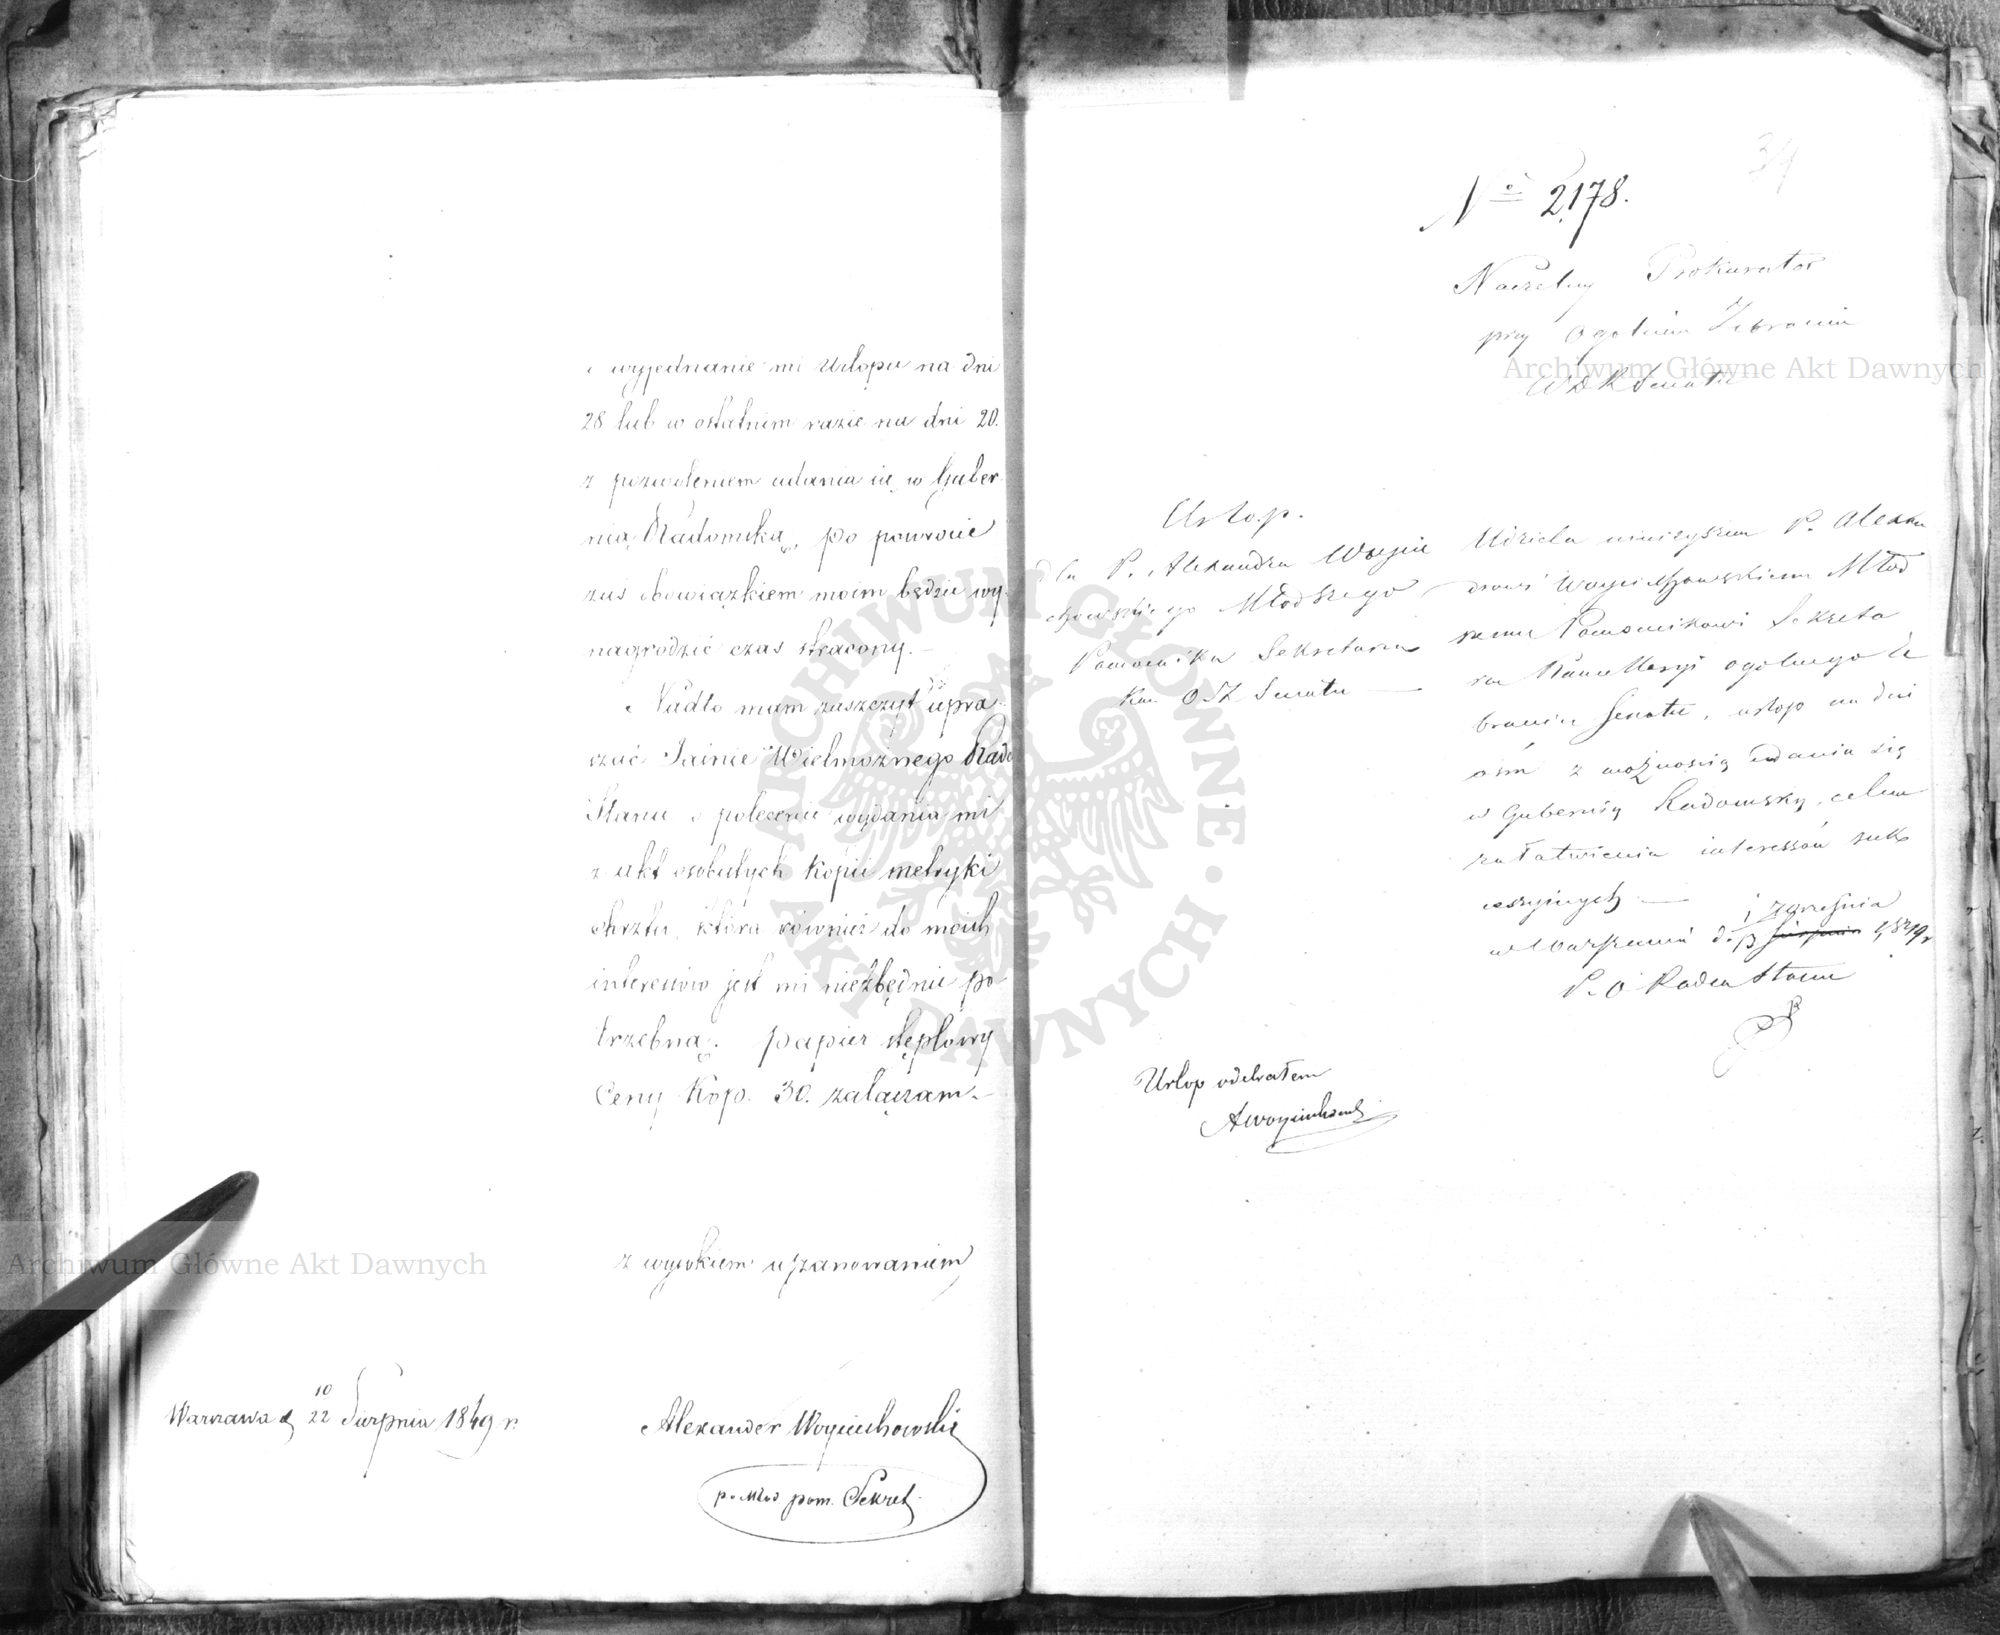 o wyjednanie mi Urlopu na dni
28 lub w ostatnim razie na dni 20.
z pozwoleniem udania się w Guber
nią Radomską, po powrocie
zaś obowiązkiem moim będzie wy
nagrodzić czas stracony. —
Nadto mam zaszczyt upra-
szać Jaśnie Wielmożnego Radc
Stanu o polecenie wydania mi
z akt osobistych kopii metryki
chrztu, która również do moich
interessów jest mi niezbędnie po-
trzebną. papier stęplowy
Ceny Kop. 30. załączam. —
z wysokiem uszanowaniem
Warszawa d 10/22 Sierpnia 1849 r.
Alexander Woyciechowski
p. Młod pom. Sekret.
34
No 2178.
Naczelny Prokurator
przy Ogolnem Zebraniu
WDR Senatu
Urlop.
dla P. Alexandra Woycie
chowskiego Młodszego
Pomocnika Sekretarza
Kan. OZ Senatu —
Udziela niniejszem P. Alexan
drowi Woyciechowskiemu Młod
szemu Pomocnikowi Sekreta
rza Kancellaryi ogolnego Ze
brania Senatu, urlop na dni
ośm z możnością udania się
w Gubernią Radomską, celem
załatwienia interessów suk
cessyjnych —
w Warszawie d. 1/13 Września Sierpnia 1849 r
P. O Radca Stanu
Urlop odebrałem
AWoyciechowski
Archiwum Główne Akt Dawnych
Archiwum Główne Akt Dawnych
ARCHIWUM GŁÓWNE AKT DAWNYCH